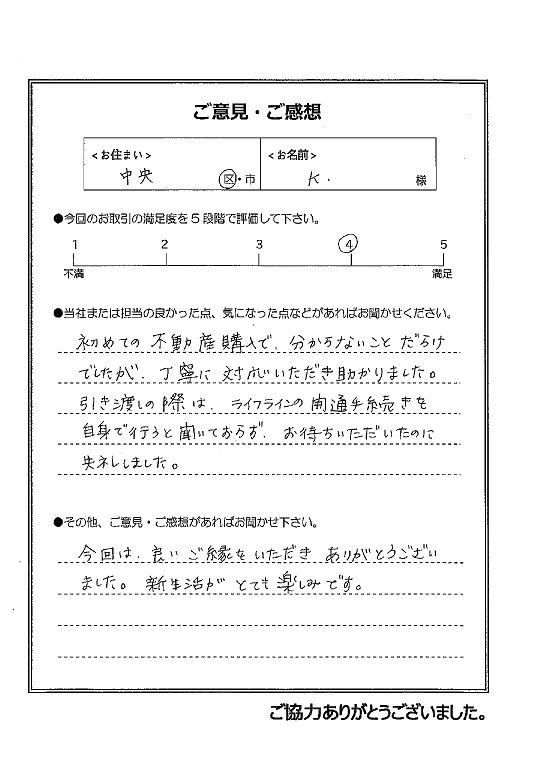 ご意見・ご感想
<お住まい>
中央 区・市
<お名前>
K. 様
●今回のお取引の満足度を5段階で評価して下さい。
1 2 3 4 5
不満 満足
●当社または担当の良かった点、気になった点などがあればお聞かせください。
初めての不動産購入で、分からないことだらけ
でしたが、丁寧に対応いただき助かりました。
引き渡しの際は、ライフラインの開通手続きを
自身で行うと聞いておらず、お待ちいただいたのに
失礼しました。
●その他、ご意見・ご感想があればお聞かせ下さい。
今回は、良いご縁をいただきありがとうござい
ました。新生活がとても楽しみです。
ご協力ありがとうございました。